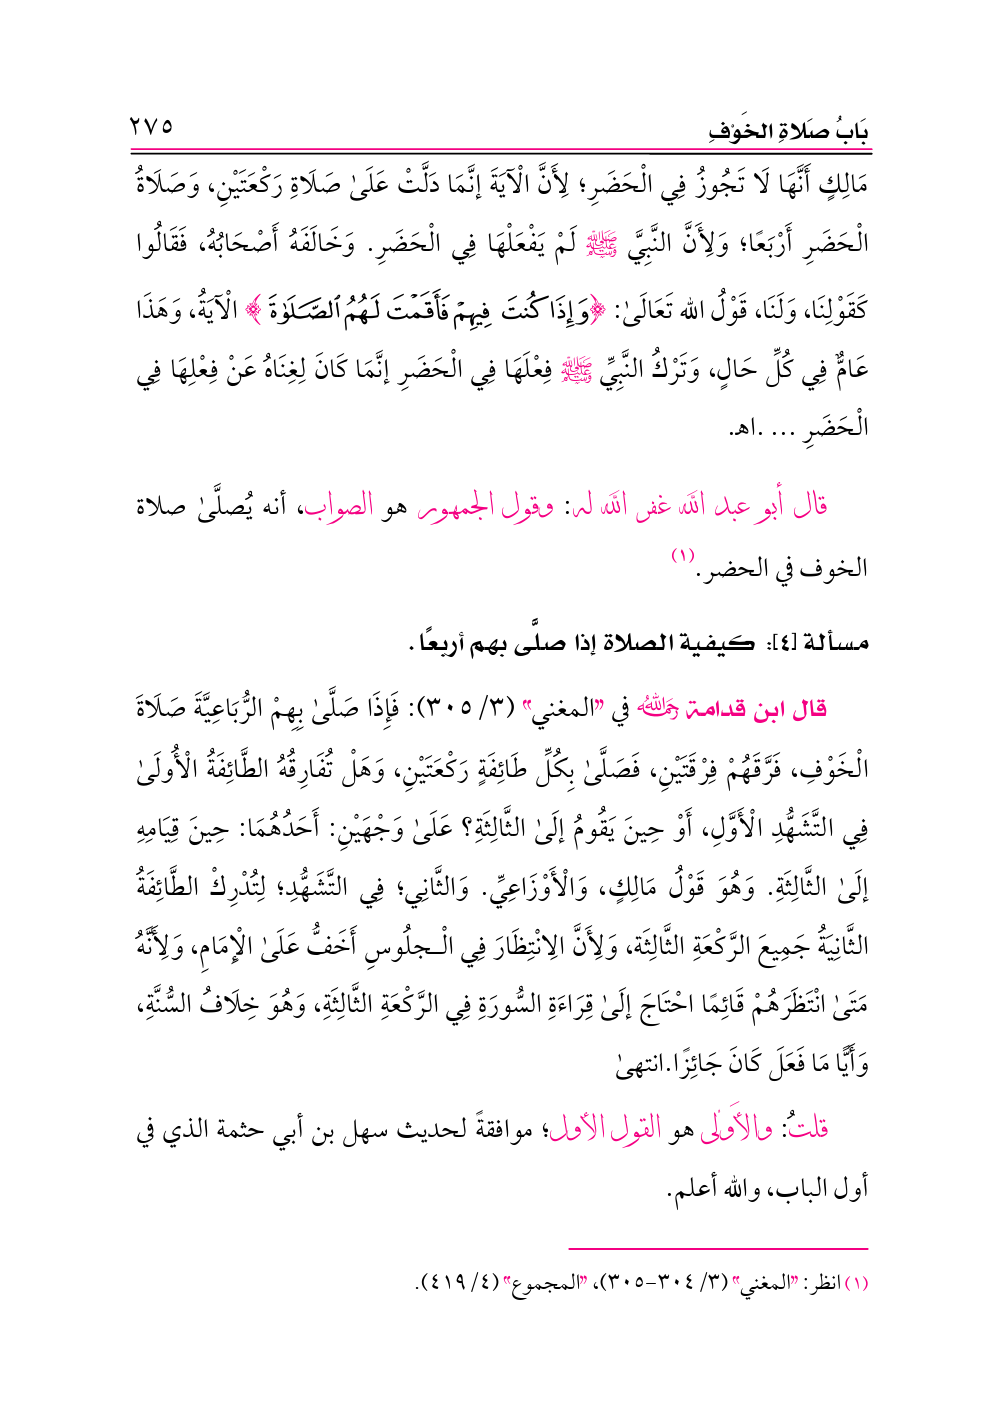 بَابُ صَلاةِ الخَوْفِ ٢٧٥
مَالِكٍ أَنَّهَا لَا تَجُوزُ فِي الْحَضَرِ؛ لِأَنَّ الْآيَةَ إنَّمَا دَلَّتْ عَلَىٰ صَلَاةِ رَكْعَتَيْنِ، وَصَلَاةُ
الْحَضَرِ أَرْبَعًا؛ وَلِأَنَّ النَّبِيَّ ﷺ لَمْ يَفْعَلْهَا فِي الْحَضَرِ. وَخَالَفَهُ أَصْحَابُهُ، فَقَالُوا
كَقَوْلِنَا، وَلَنَا، قَوْلُ الله تَعَالَىٰ: ﴿وَإِذَا كُنتَ فِيهِمْ فَأَقَمْتَ لَهُمُ ٱلصَّلَوٰةَ﴾ الْآيَةُ، وَهَذَا
عَامٌّ فِي كُلِّ حَالٍ، وَتَرْكُ النَّبِيِّ ﷺ فِعْلَهَا فِي الْحَضَرِ إنَّمَا كَانَ لِغِنَاهُ عَنْ فِعْلِهَا فِي
الْحَضَرِ ... .اهـ.
قال أبو عبد الله غفر الله له: وقول الجمهور هو الصواب، أنه يُصلَّىٰ صلاة
الخوف في الحضر.(١)
مسألة [٤]: كيفية الصلاة إذا صلَّى بهم أربعًا.
قال ابن قدامة رحمه الله في "المغني" (٣/ ٣٠٥): فَإِذَا صَلَّىٰ بِهِمْ الرُّبَاعِيَّةَ صَلَاةَ
الْخَوْفِ، فَرَّقَهُمْ فِرْقَتَيْنِ، فَصَلَّىٰ بِكُلِّ طَائِفَةٍ رَكْعَتَيْنِ، وَهَلْ تُفَارِقُهُ الطَّائِفَةُ الْأُولَىٰ
فِي التَّشَهُّدِ الْأَوَّلِ، أَوْ حِينَ يَقُومُ إلَىٰ الثَّالِثَةِ؟ عَلَىٰ وَجْهَيْنِ: أَحَدُهُمَا: حِينَ قِيَامِهِ
إلَىٰ الثَّالِثَةِ. وَهُوَ قَوْلُ مَالِكٍ، وَالْأَوْزَاعِيِّ. وَالثَّانِي؛ فِي التَّشَهُّدِ؛ لِتُدْرِكَْ الطَّائِفَةُ
الثَّانِيَةُ جَمِيعَ الرَّكْعَةِ الثَّالِثَة، وَلِأَنَّ الِانْتِظَارَ فِي الْـجلُوسِ أَخَفُّ عَلَىٰ الْإِمَامِ، وَلِأَنَّهُ
مَتَىٰ انْتَظَرَهُمْ قَائِمًا احْتَاجَ إلَىٰ قِرَاءَةِ السُّورَةِ فِي الرَّكْعَةِ الثَّالِثَةِ، وَهُوَ خِلَافُ السُّنَّةِ،
وَأَيًّا مَا فَعَلَ كَانَ جَائِزًا.انتهىٰ
قلتُ: والأَولى هو القول الأول؛ موافقةً لحديث سهل بن أبي حثمة الذي في
أول الباب، والله أعلم.
(١) انظر: "المغني" (٣/ ٣٠٤-٣٠٥)، "المجموع" (٤/ ٤١٩).